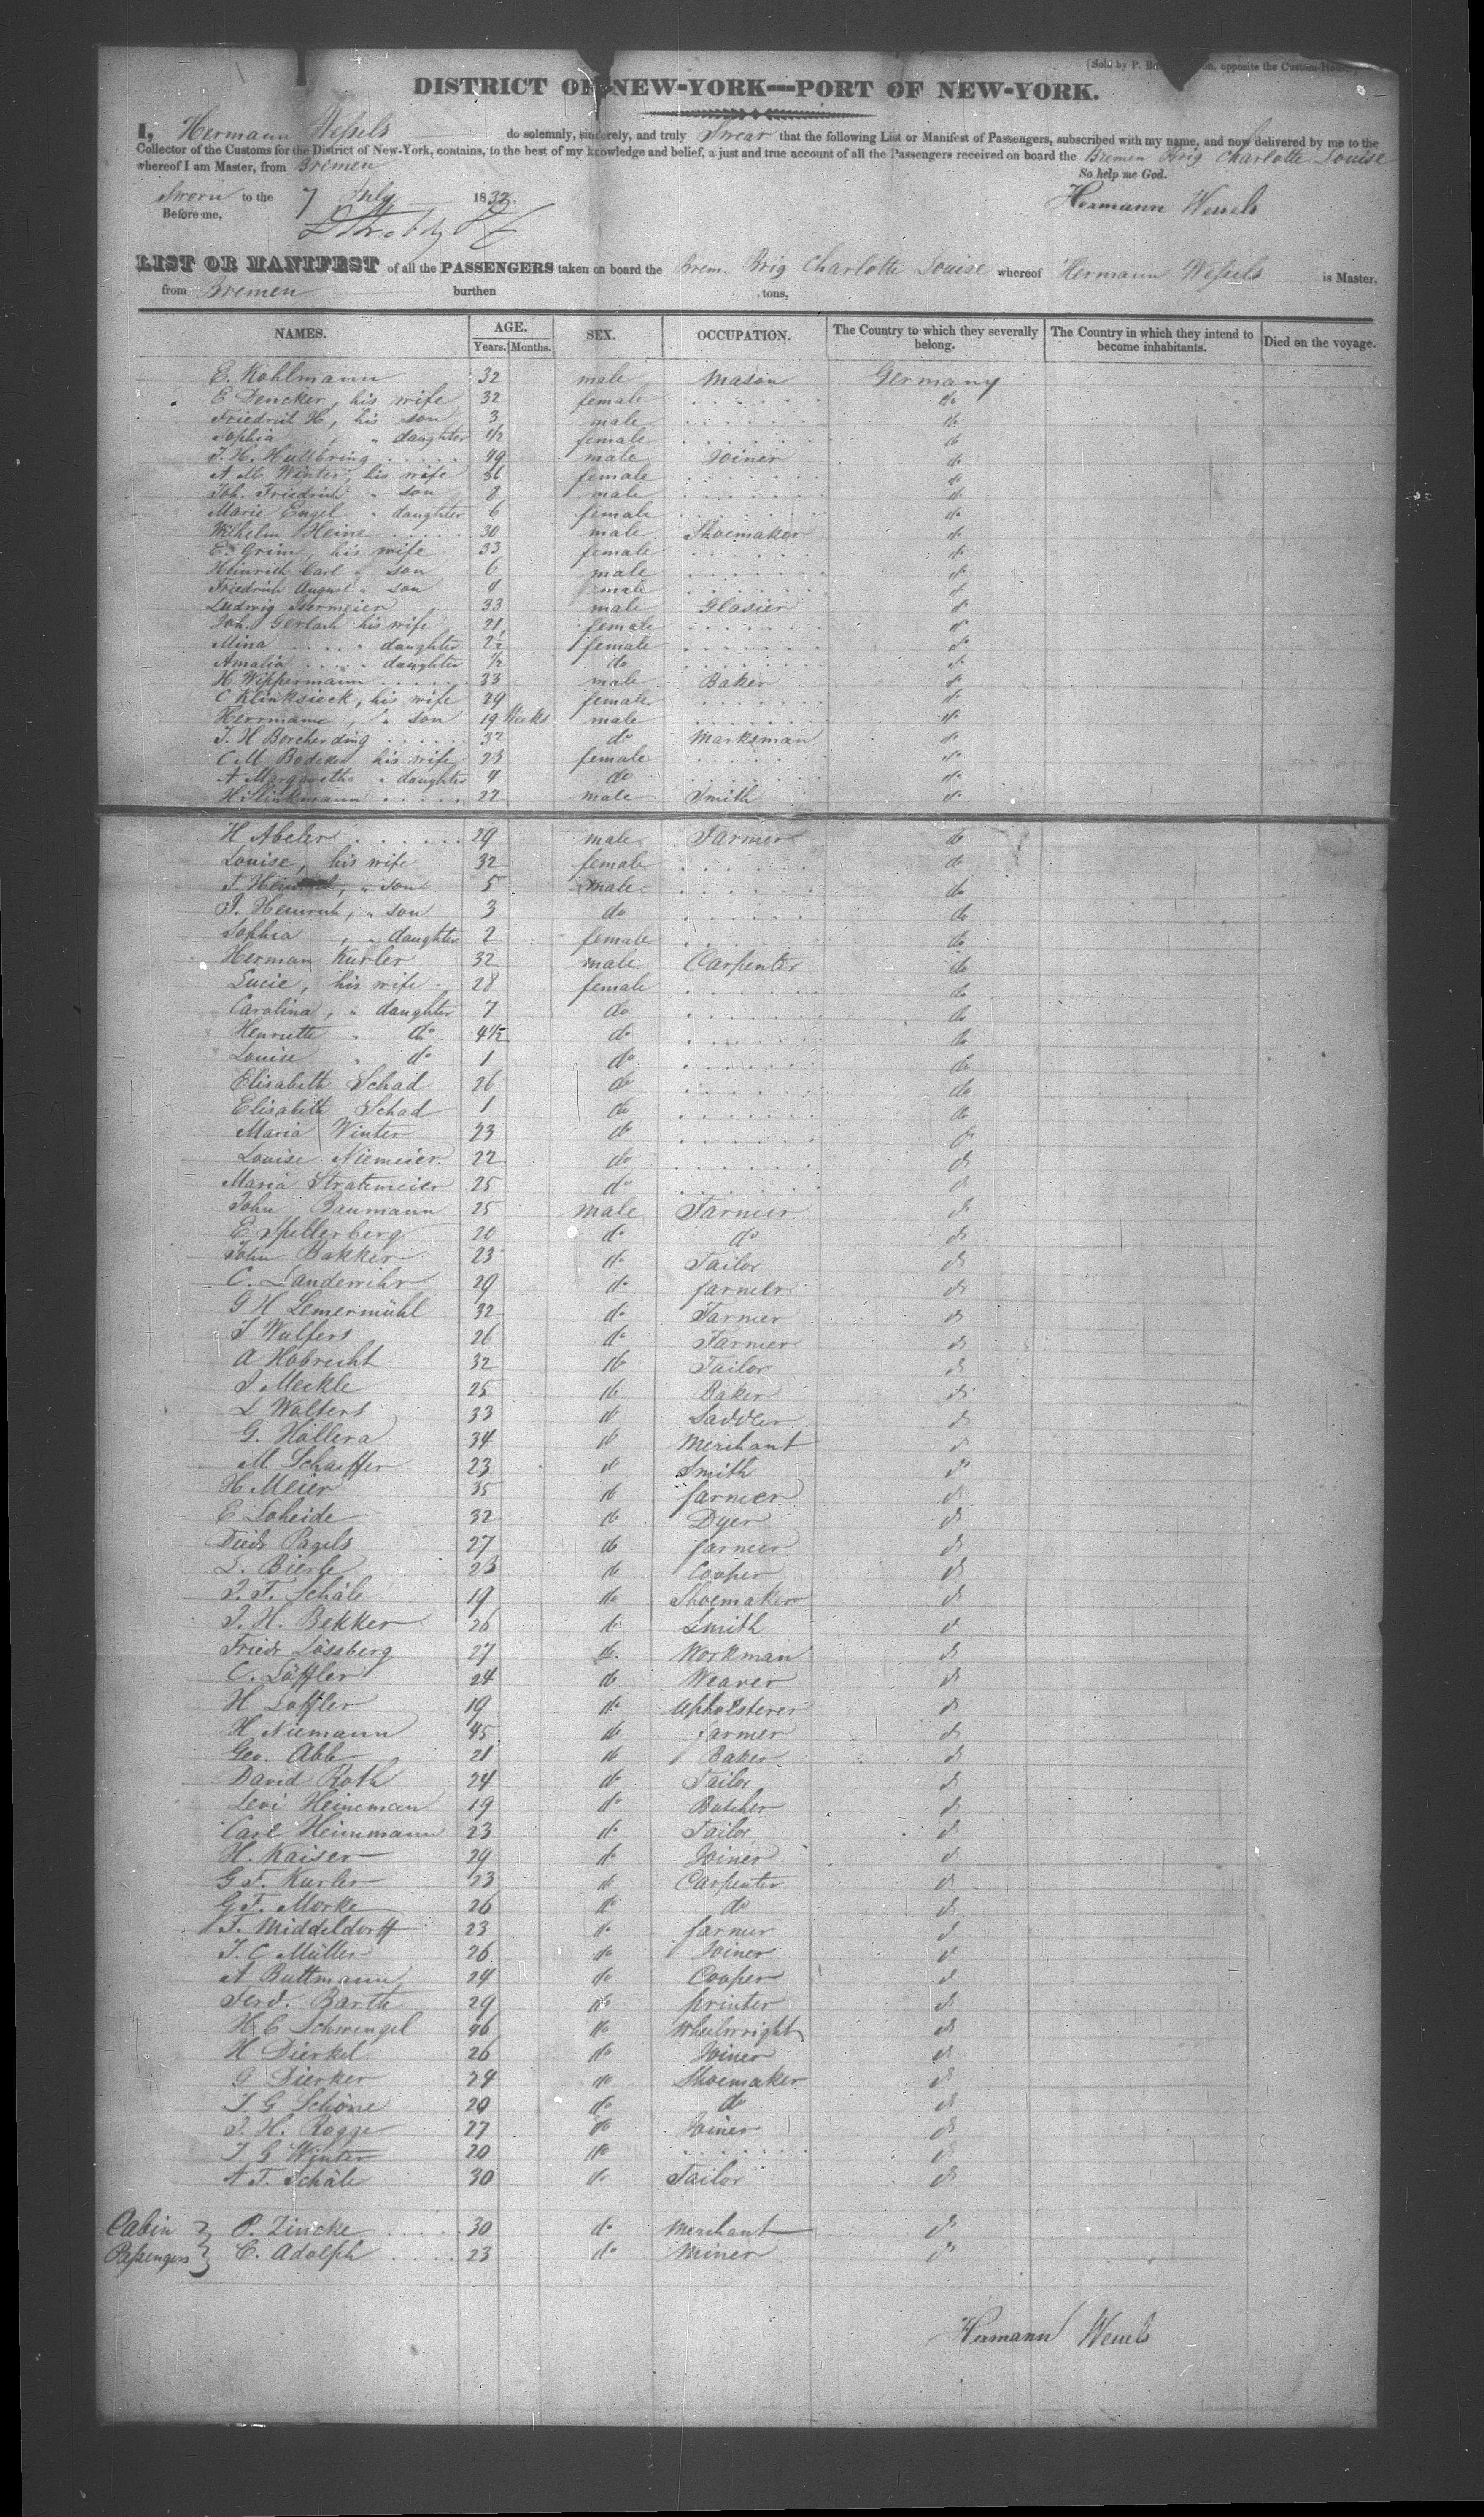 [Sold by P. on, opposite the Custom-House.]
DISTRICT OF NEW-YORK—PORT OF NEW-YORK.
I, Hermann Weßels do solemnly, sincerely, and truly Swear that the following List or Manifest of Passengers, subscribed with my name, and now delivered by me to the
Collector of the Customs for the District of New-York, contains, to the best of my knowledge and belief, a just and true account of all the Passengers received on board the Bremen Brig Charlotte Louise
whereof I am Master, from Bremen
So help me God.
Sworn to the 7 July 1832.
Hermann Wessels
Before me,
LIST OR MANIFEST of all the PASSENGERS taken on board the Brem. Brig Charlotte Louise whereof Hermann Weßels is Master,
from Bremen burthen tons,
NAMES. AGE. SEX. OCCUPATION. The Country to which they severally belong. The Country in which they intend to become inhabitants. Died on the voyage.
Years. Months.
E. Kohlmann 32 male Mason Germany
E Dencker, his wife 32 female do
Friedrich H, his son 3 male do
Sophia , " daughter 1/2 female do
J. H. 49 male Joiner do
A M. Winter, his wife 36 female do
Joh. Friedrich " son 8 male do
Marie Engel " daughter 6 female do
Wilhelm Heine 30 male Shoemaker do
E. Grim, his wife 33 female do
Heinrich Carl " son 6 male do
Friedrich August " son 4 male do
Ludwig Isermeier 33 male Glasier do
Joh. Gerlach his wife 21 female do
Mina " daughter 2½ female do
Amalia " daughter ½ do do
H Wippermann 33 male Baker do
C Klinksieck, his wife 29 female do
Herrmann , " son 19 Weeks male do
J. H Borcherding 32 do Marksman do
C. M. Bödeker his wife 23 female do
A Margaretha " daughter 4 do do
H 22 male Smith do
H Abeler 29 male Farmer do
Louise, his wife 32 female do
J. , " son 5 male do
J. Heinrich, " son 3 do do
Sophia , " daughter 2 female do
Herman Kurler 32 male Carpenter do
Lucie, his wife 28 female do
Carolina, " daughter 7 do do
Henriette " do 4½ do do
Louise " do 1 do do
Elisabeth Schad 26 do do
Elisabeth Schad 1 do do
Maria Winter 23 do do
Louise Niemeier 22 do do
Maria Stratemeier 25 do do
John Baumann 25 male Farmer do
E Spellerberg 20 do do do
John Bakker 23 do Tailor do
C. Landewihr 29 do farmer do
G H Lemermühl 32 do Farmer do
J Wulfers 26 do Farmer do
A Hobrecht 32 do Tailor do
J Meckle 25 do Baker do
L Wolters 33 do Saddler do
G. Höllera 34 do Merchant do
M Schaeffer 23 do Smith do
H Meier 35 do farmer do
E Loheide 32 do Dyer do
Diedr Pagels 27 do farmer do
L. Bierle 23 do Cooper do
J. F. Schäle 19 do Shoemaker do
J. H. Bekker 26 do Smith do
Friedr Lössberg 27 do Workman do
C. Löffler 24 do Weaver do
H Löffler 19 do Upholsterer do
H Niemann 45 do farmer do
Geo. Abb 21 do Baker do
David Roth 24 do Tailor do
Levi Heineman 19 do Butcher do
Carl Heinmann 23 do Tailor do
H. Kaiser 29 do Joiner do
G F. Kurler 23 do Carpenter do
G F. Morke 26 do do do
F. Middeldorff 23 do farmer do
J. C Müller 26 do Joiner do
A Buttmann 24 do Cooper do
Ferd. Barth 29 do printer do
H. C Schwengel 46 do Wheelwright do
H Dierkel 26 do Joiner do
G Dierker 24 do Shoemaker do
J. G Schöne 20 do do do
J. H. Rogge 27 do Joiner do
J. G Winter 20 do do
A F. Schäle 30 do Tailor do
Cabin P. Zincke 30 do Merchant do
Paßengers C. Adolph 23 do Miner do
Hermann Wessels